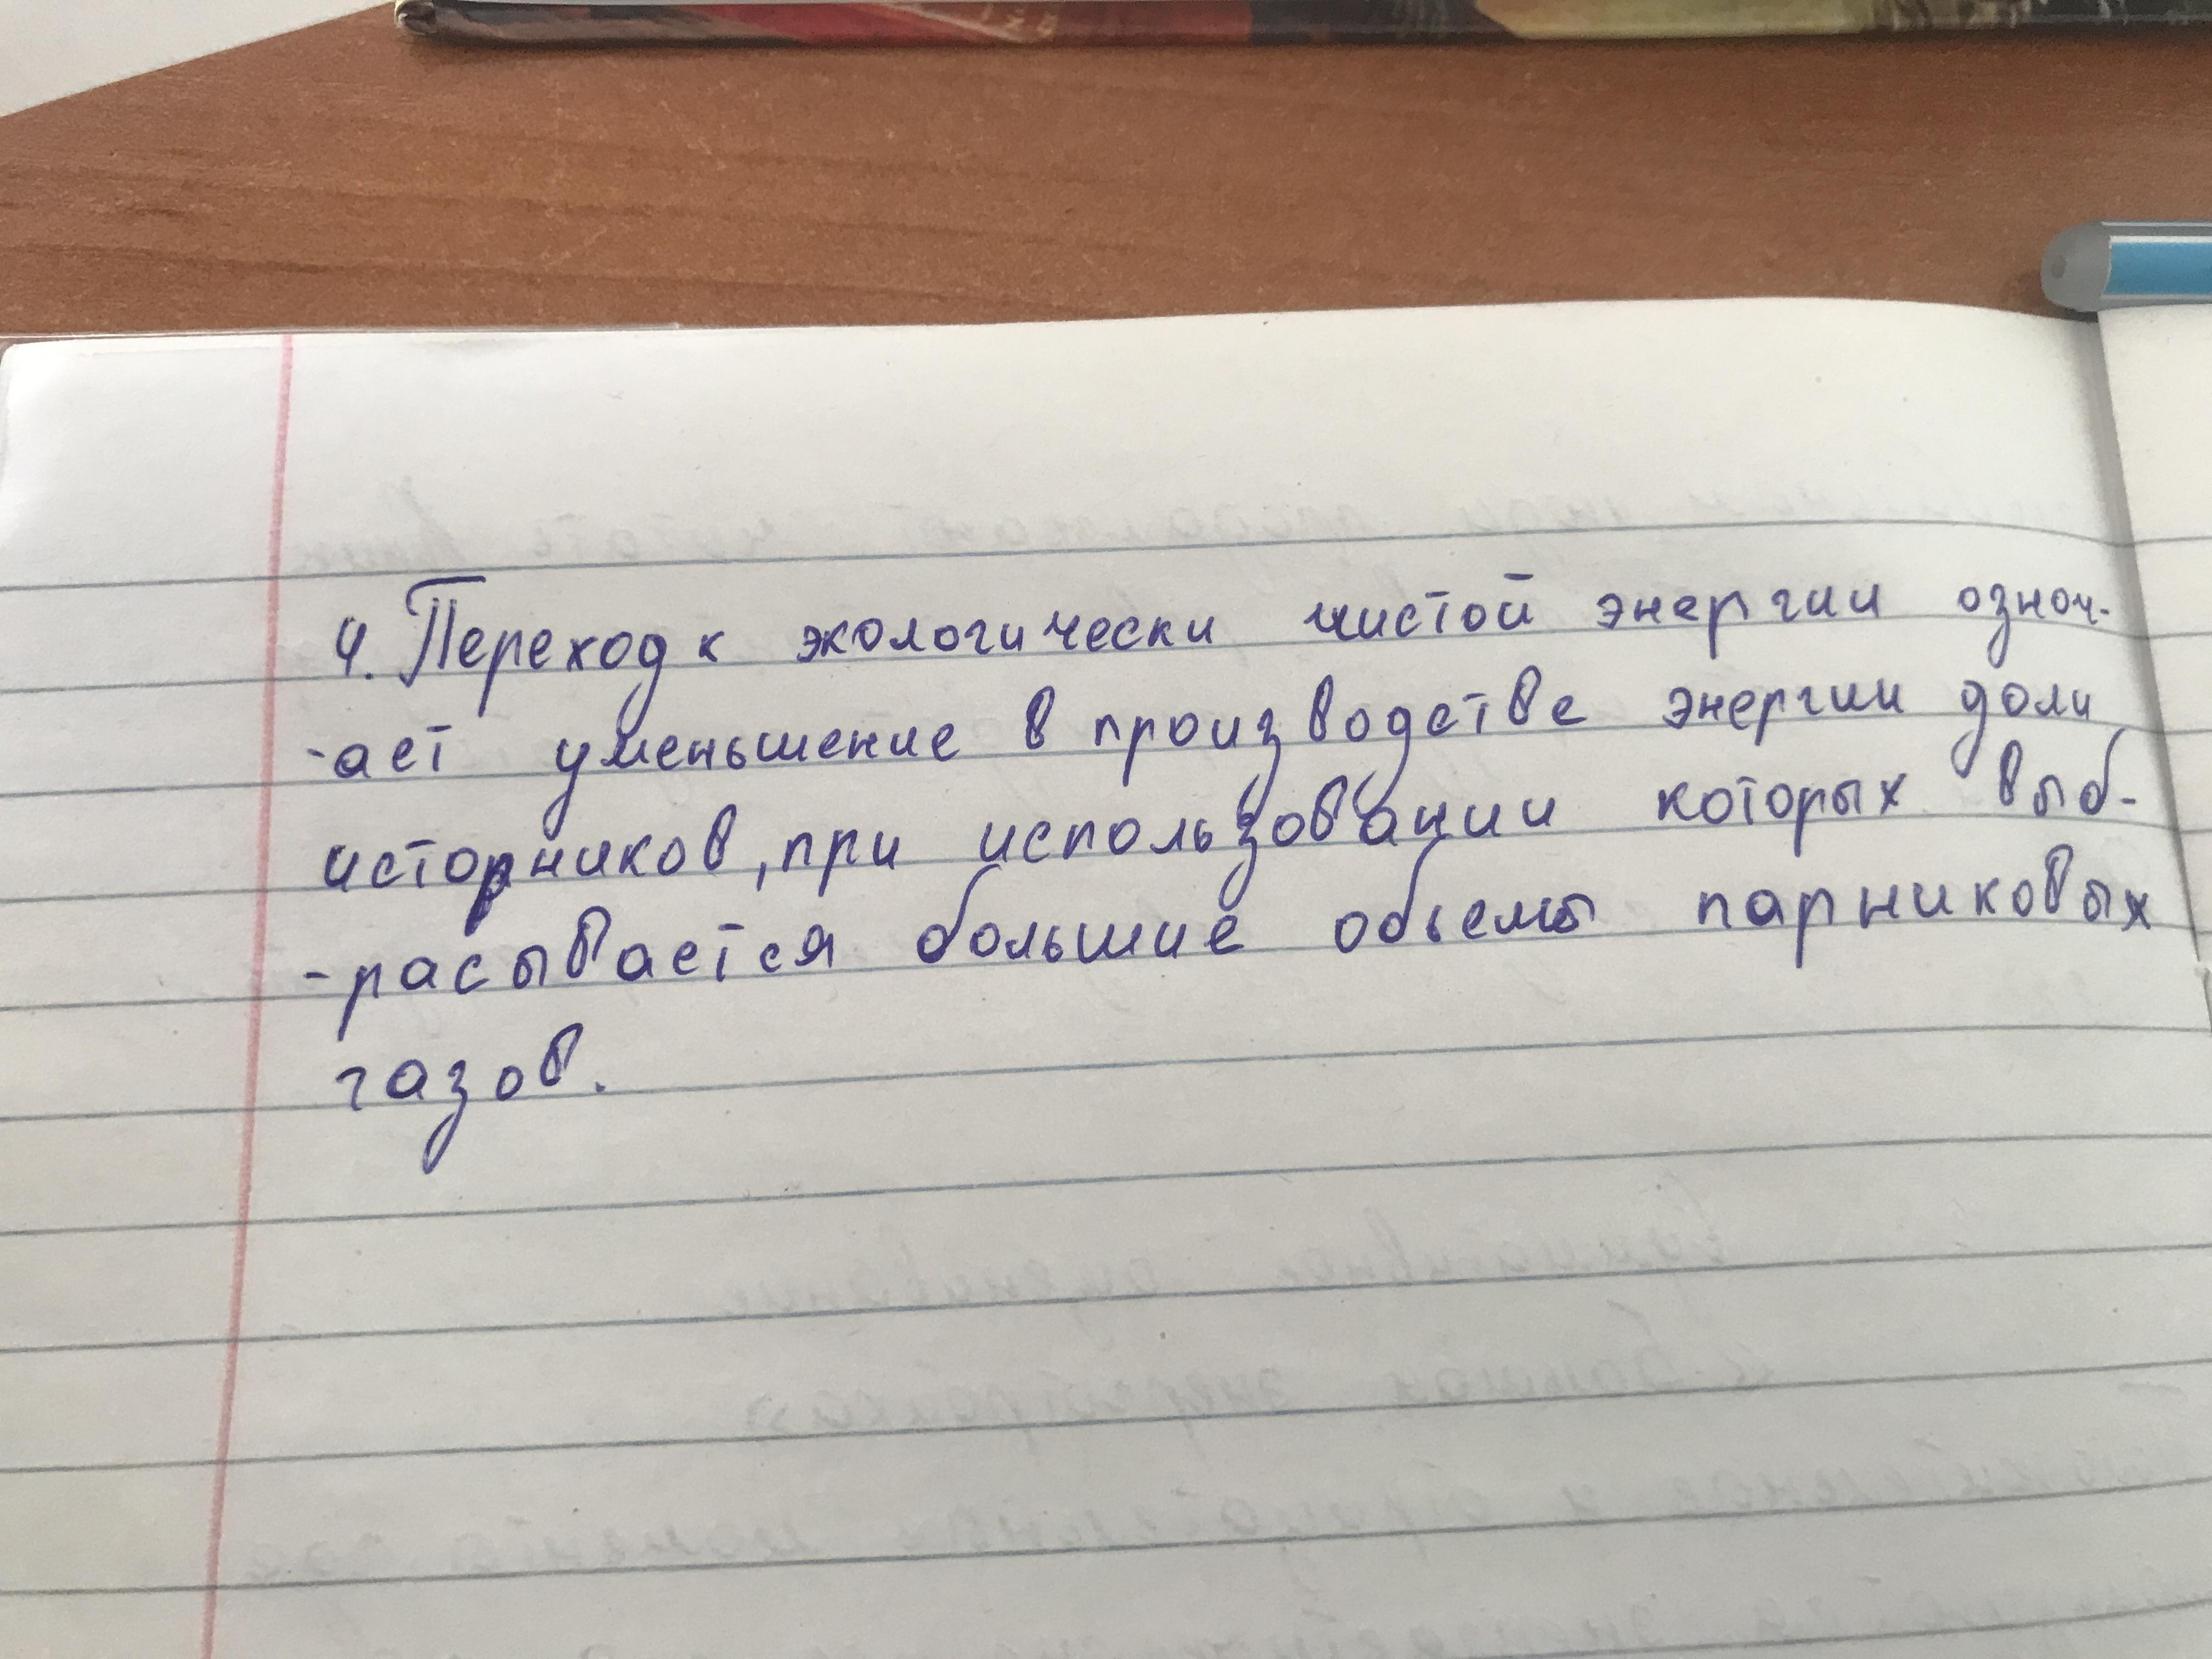 4. Переход к экологически чистой энергии означ-
-ает уменьшение в производстве энергии доли
исторников, при использовании которых выб-
-расывается большие обьемы парниковых
газов.